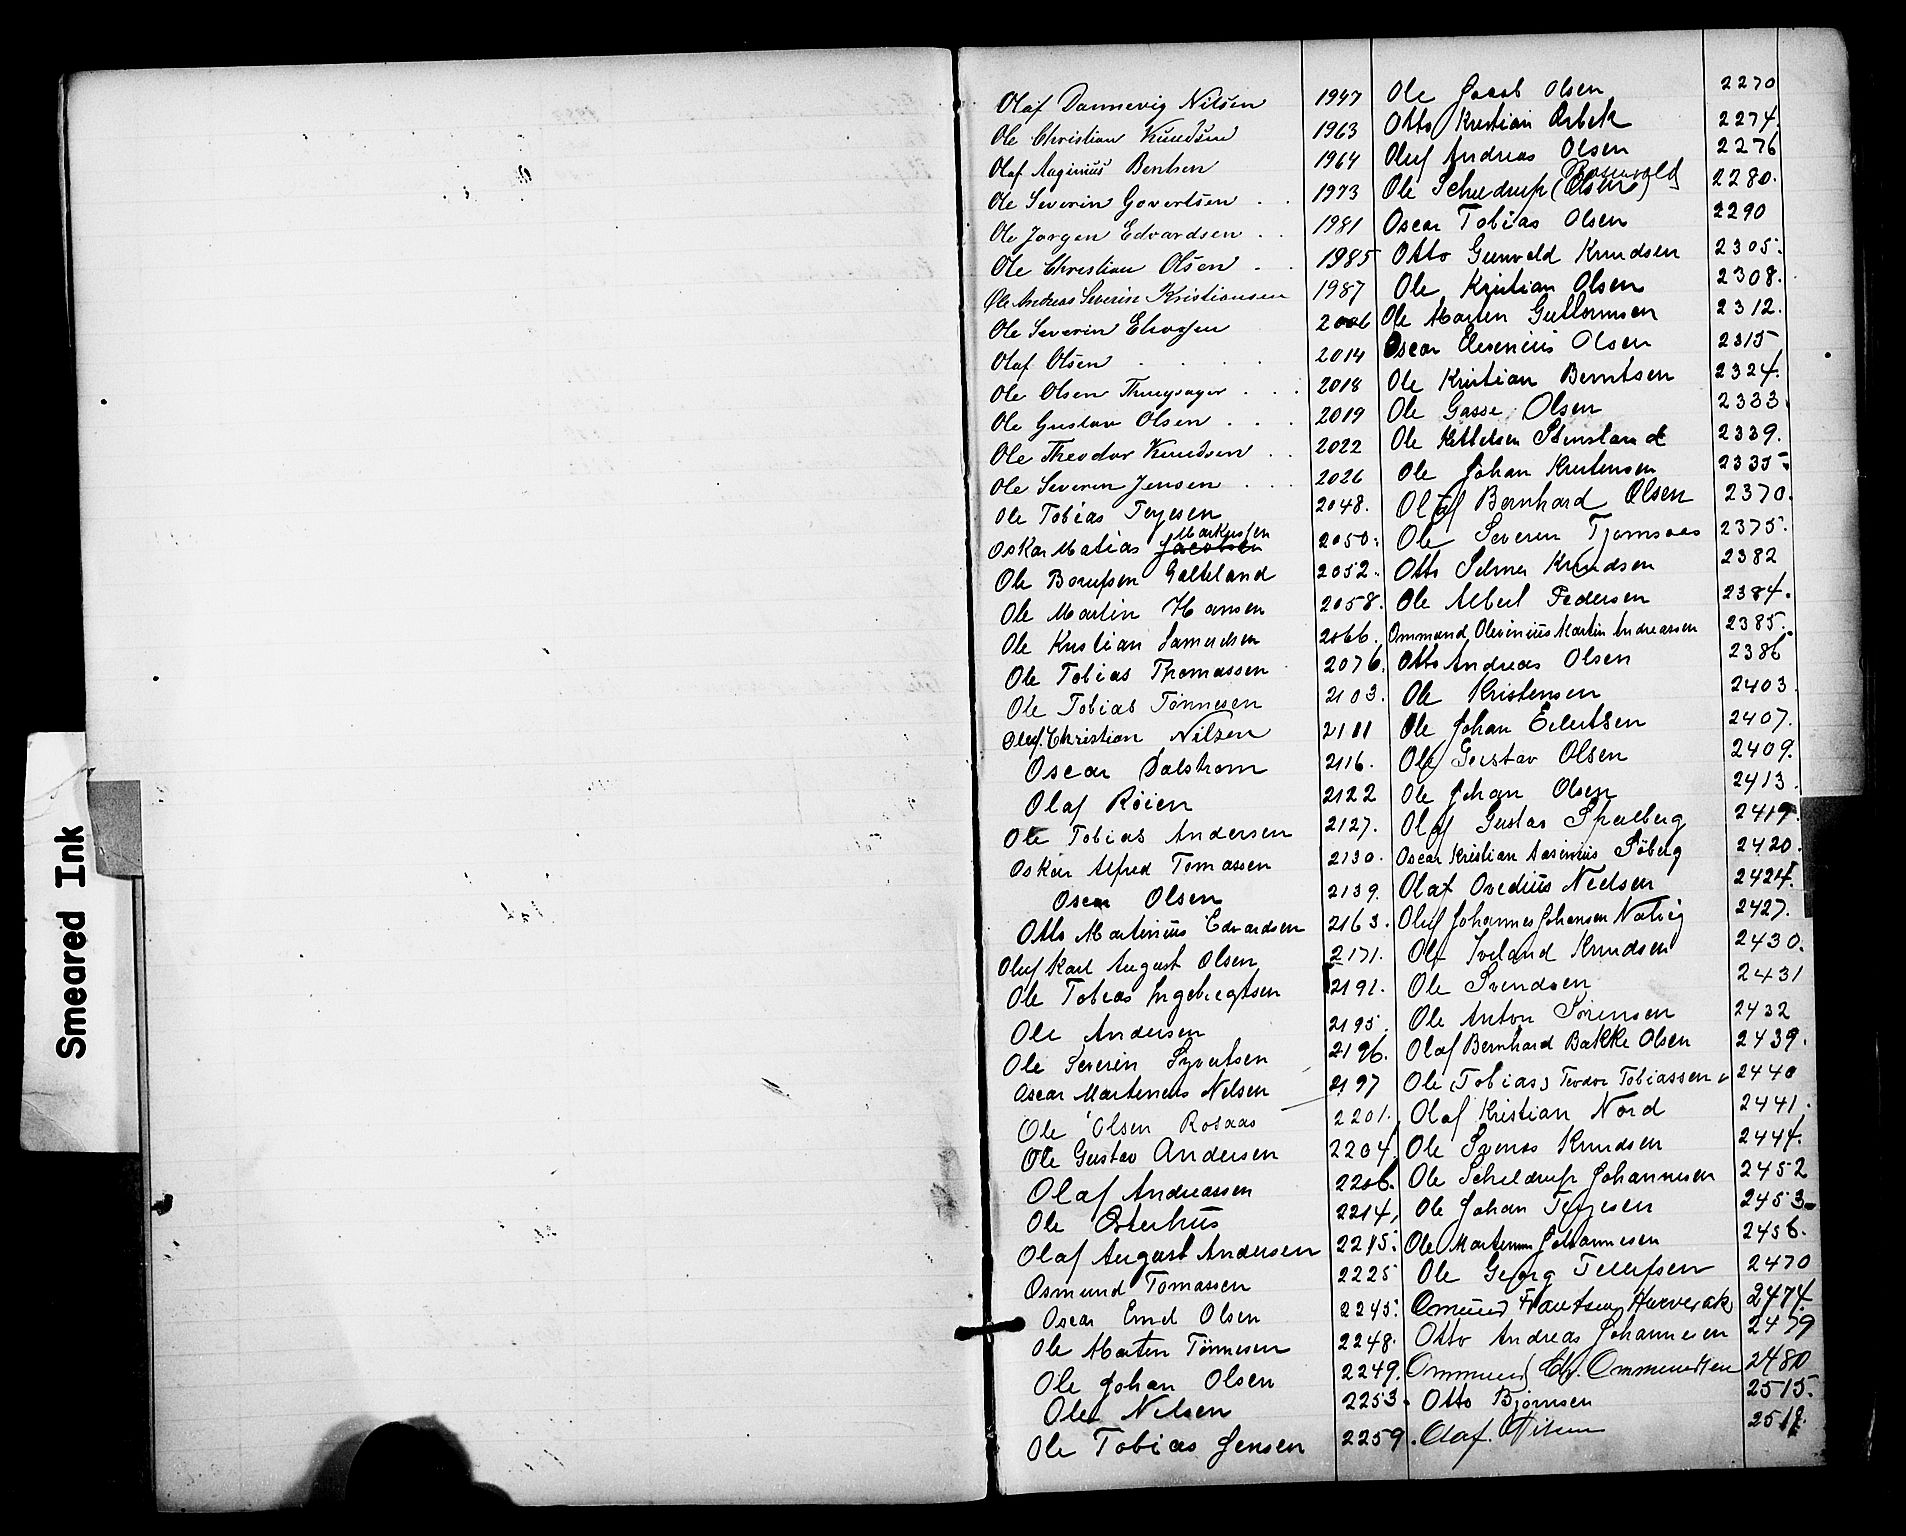 Smeared Ink
Olaf Dannevig Nilsen 1947
Ole Christian Knudsen 1963
Olaf Bentsen 1964
Ole Severin Govertsen . . 1973
Ole Jørgen Edvardsen . . 1981
Ole Christian Olsen . . 1985
Ole Andreas Severin Kristiansen 1987
Ole Severin 2006
Olaf Olsen . . . 2014
Ole Olsen . . . 2018
Ole Gustav Olsen . . . 2019
Ole Theodor Knudsen . . 2022
Ole Severin Jensen . . . 2026
Ole Tobias Terjesen 2048.
Markussen
Oskar Matias Jacobsen 2050.
Ole Galteland 2052.
Ole Martin Hansen 2058.
Ole Kristian Samuelsen 2066.
Ole Tobias Thomassen 2076.
Ole Tobias Tønnesen 2103.
Oluf Christian Nilsen 2111
Oscar Dalstrøm 2116.
Olaf Röien 2122
Ole Tobias Andersen 2127.
Oskar Alfred Tomassen 2130.
Oscar Olsen 2139.
Otto Martinius Edvardsen 2163.
Oluf Karl August Olsen 2171.
Ole Tobias Ingebregtsen 2191.
Ole Andersen 2195.
Ole Severin Syvertsen 2196.
Oscar Martinius Nilsen 2197
Ole Olsen Rosaas 2201.
Ole Gustav Andersen 2204
Olaf Andreassen 2206.
Ole Osterhus 2214,
Olaf August Andersen 2215.
Osmund Tomassen 2225
Oscar Emil Olsen 2245.
Ole Martin Tönnesen 2248.
Ole Johan Olsen 2249.
Ole Nilsen 2253.
Ole Tobias Jensen 2259.
Ole Jacob Olsen 2270
Otto Kristian Orbek 2274.
Oluf Andreas Olsen 2276
Rosenvold
Ole Scheldrup (Olsen) 2280.
Oscar Tobias Olsen 2290
Otto Gunvald Knudsen 2305.
Ole Kristian Olsen 2308.
Ole Martin Guttormsen 2312.
Oscar Olsen 2315
Ole Kristian Berntsen 2324.
Ole Gasse Olsen 2333.
Ole Kittelsen Stensland 2339.
Ole Johan Kristensen 2335.
Oluf Bernhard Olsen 2370.
Ole Severin Tjomsaas 2375.
Otto Selmer Knudsen 2382
Ole Albert Pedersen 2384.
Ommund Olevinius Martin Andreassen 2385.
Otto Andreas Olsen 2386
Ole Kristensen 2403.
Ole Johan Eilertsen 2407.
Ole Gustav Olsen 2409.
Ole Johan Olsen 2413.
Olaf Gustav Spalberg 2419.
Oscar Kristian Søberg 2420.
Olaf Ovedius Nielsen 2424.
Oluf Johannes Johansen Natvig 2427.
Ole Iveland Knudsen 2430.
Ole Svendsen 2431
Ole Anton Sørensen 2432
Olaf Bernhard Bakke Olsen 2439.
Ole (Tobias) Teodor Tobiassen 2440
Olaf Kristian Nord 2441.
Ole Knudsen 2444.
Ole Scheldrup Johannesen 2452
Ole Johan Terjesen 2453.
Ole Martinius Johannesen 2456.
Ole Georg Tellefsen 2470
Omund Frantsen 2474.
Otto Andreas Johannesen 2479
Ommund Chr. Ommundsen 2480
Otto Bjørnsen 2515.
Olaf Nilsen 2518.